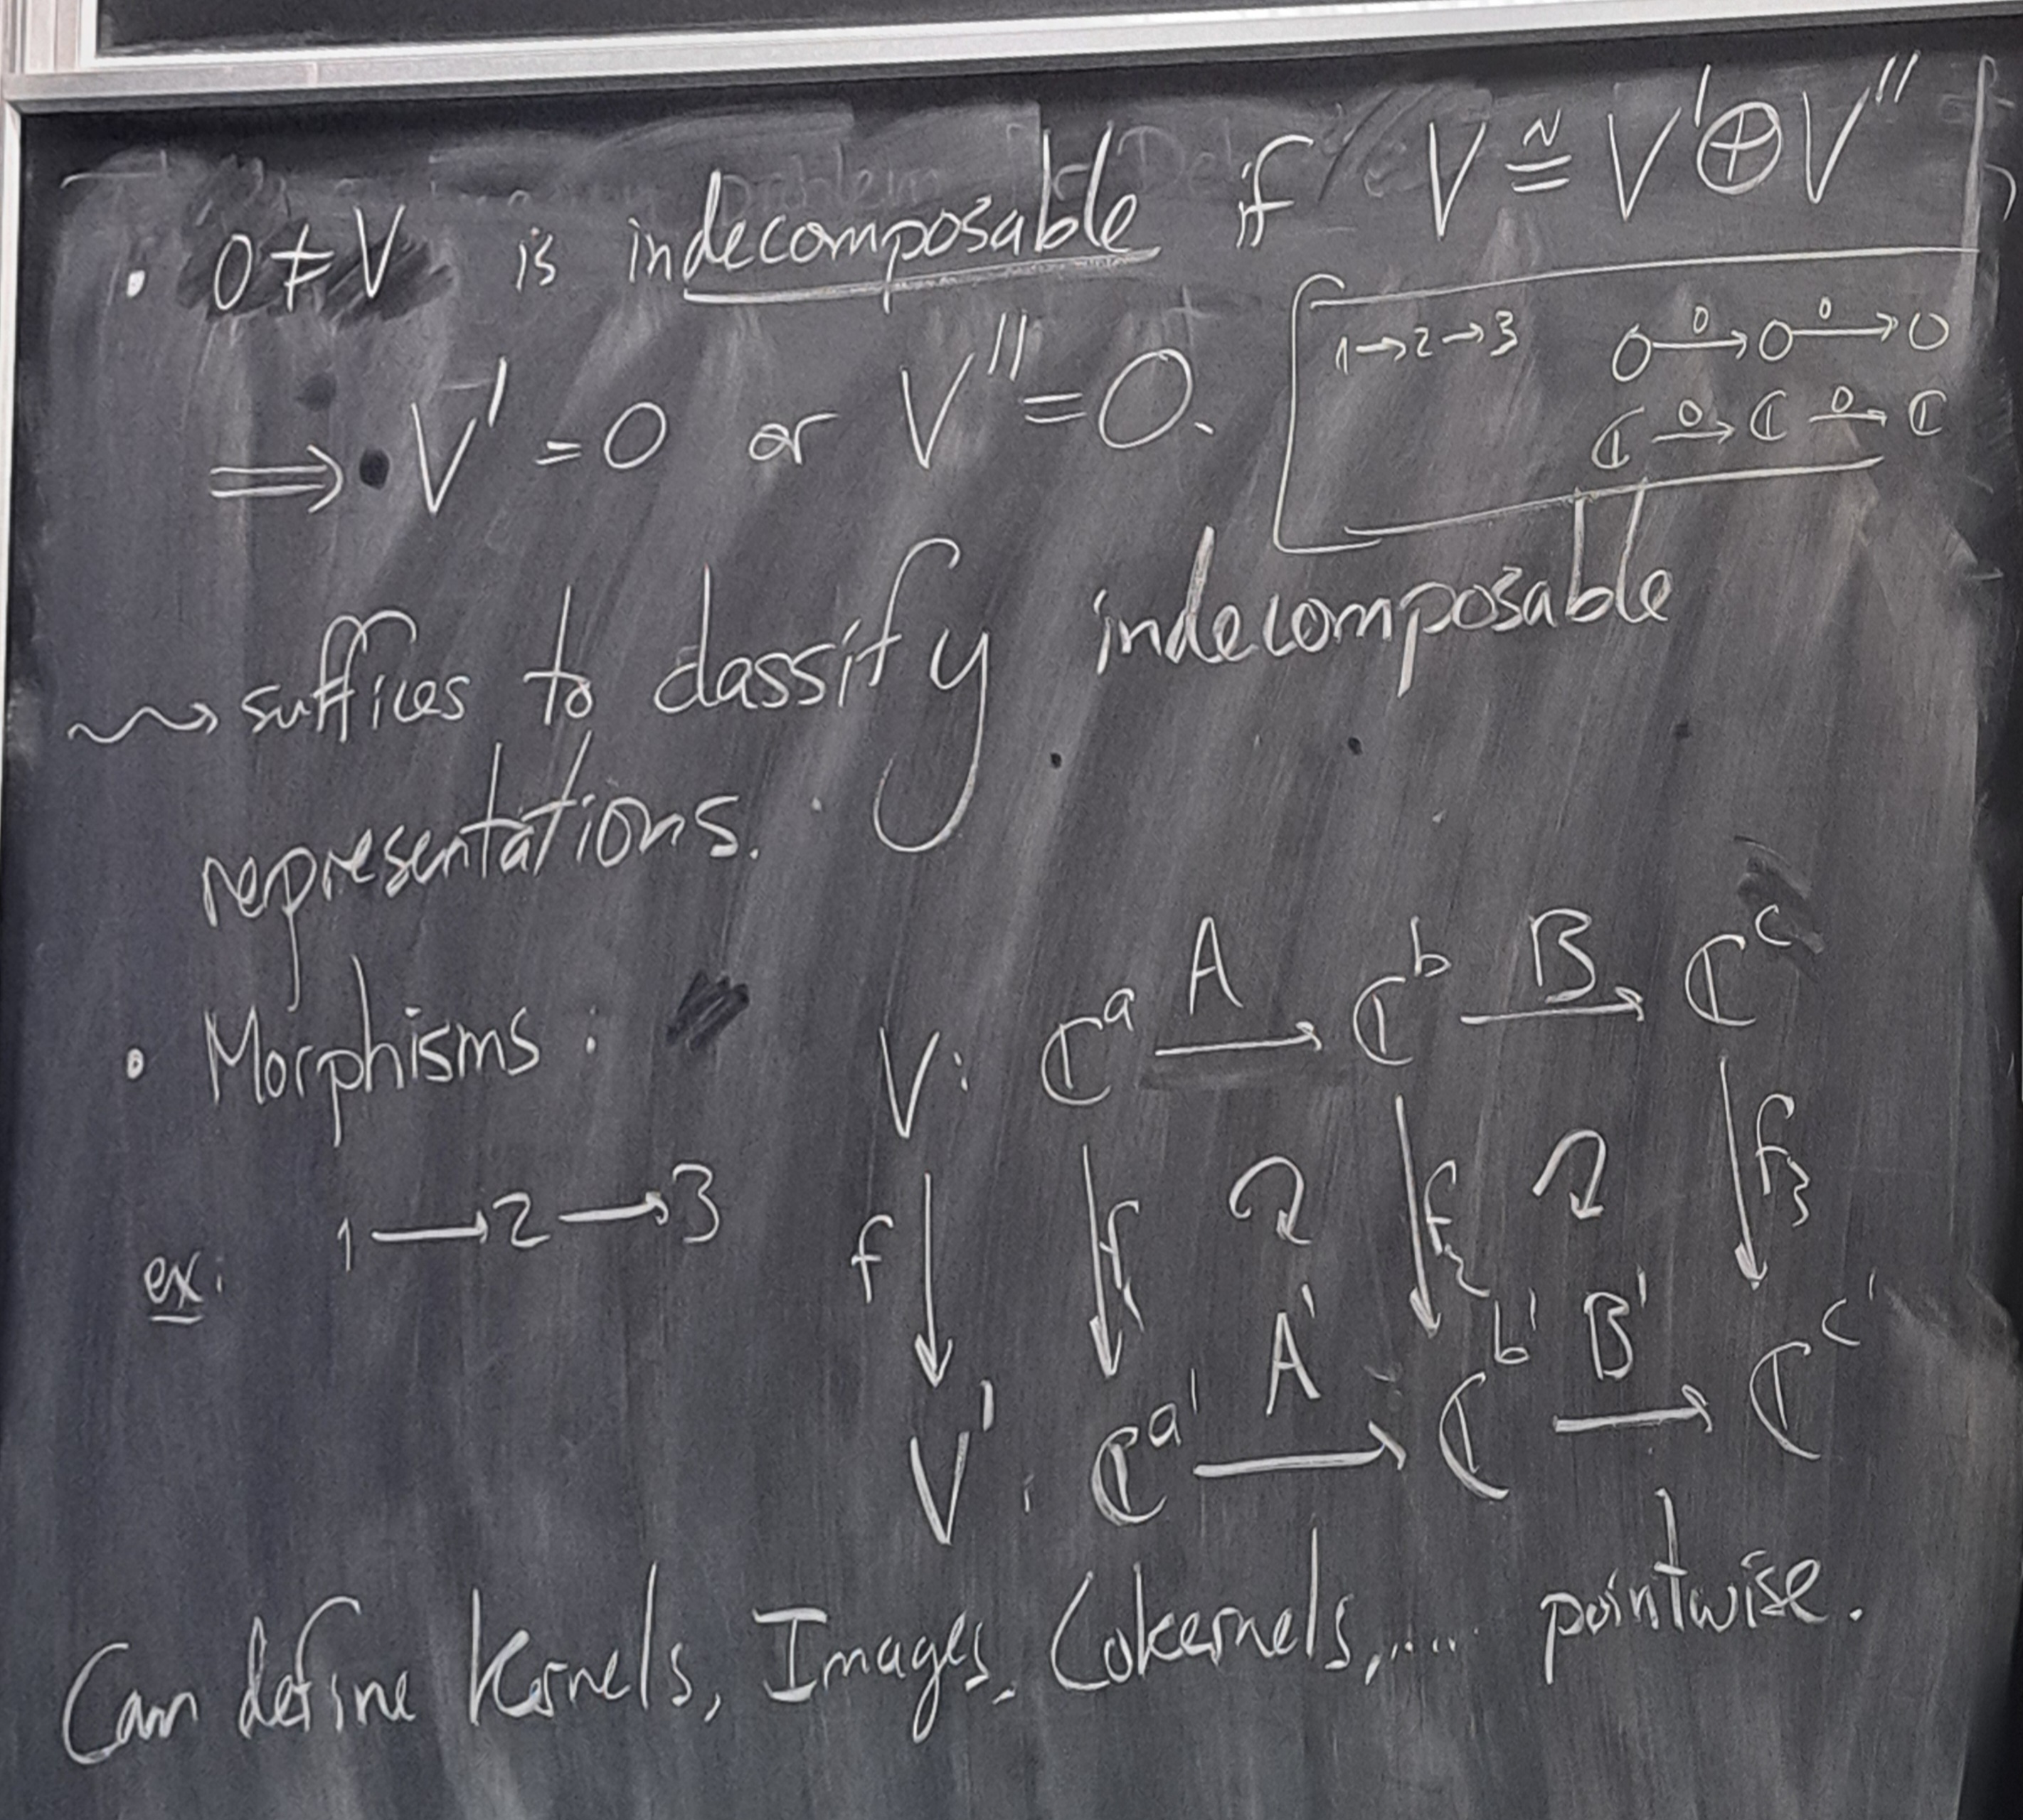 • 0 ≠ V is indecomposable if V ≅ V' ⊕ V''
⟹ V' = 0 or V'' = 0.
1 → 2 → 3    0 —0→ 0 —0→ 0
ℂ —0→ ℂ —0→ ℂ
⇝ suffices to classify indecomposable
representations.
• Morphisms : V: ℂ^a —A→ ℂ^b —B→ ℂ^c
ex: 1 → 2 → 3    f ↓    ↓ f₁ ↻ ↓ f₂ ↻ ↓ f₃
V' : ℂ^a' —A'→ ℂ^b' —B'→ ℂ^c'
Can define kernels, Images, Cokernels,..... pointwise.